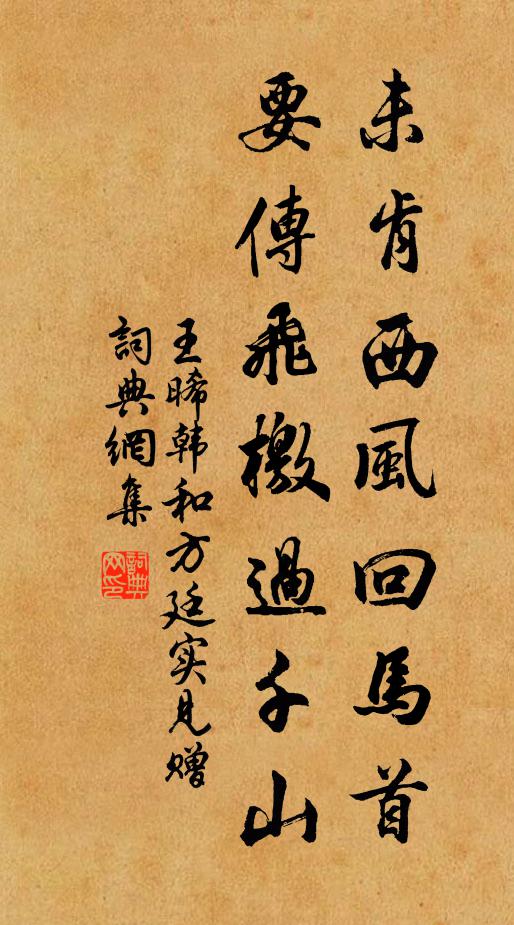 未肯西風回馬首
要傳飛檄過千山
王晞韩和方廷实見赠
詞典網集
詞典网印